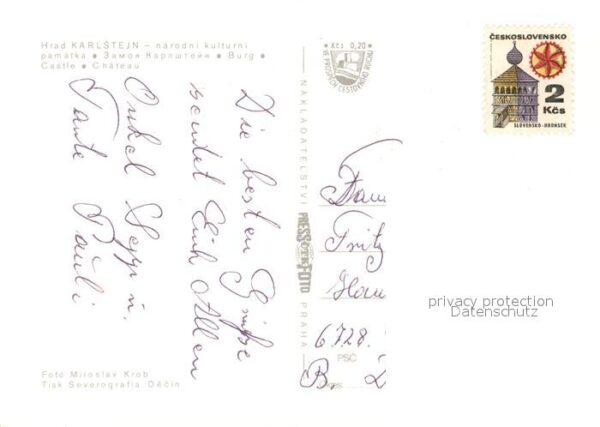 Hrad KARLŠTEJN – národní kulturní
památka • Замок Карлштейн • Burg •
Castle • Château
Die besten Grüße
sendet Euch Allen
Onkel Sepp u.
Tante Pauli
Foto Miroslav Krob
Tisk Severografia Děčín
Kčs 0,20
VE PROSPĚCH CESTOVNÍHO RUCHU
NAKLADATELSTVÍ
PRESSFOTO
PRAHA
Fam
Fritz
6728
PSČ
B.
ČESKOSLOVENSKO
2
Kčs
SLOVENSKO-HRONSEK
privacy protection
Datenschutz